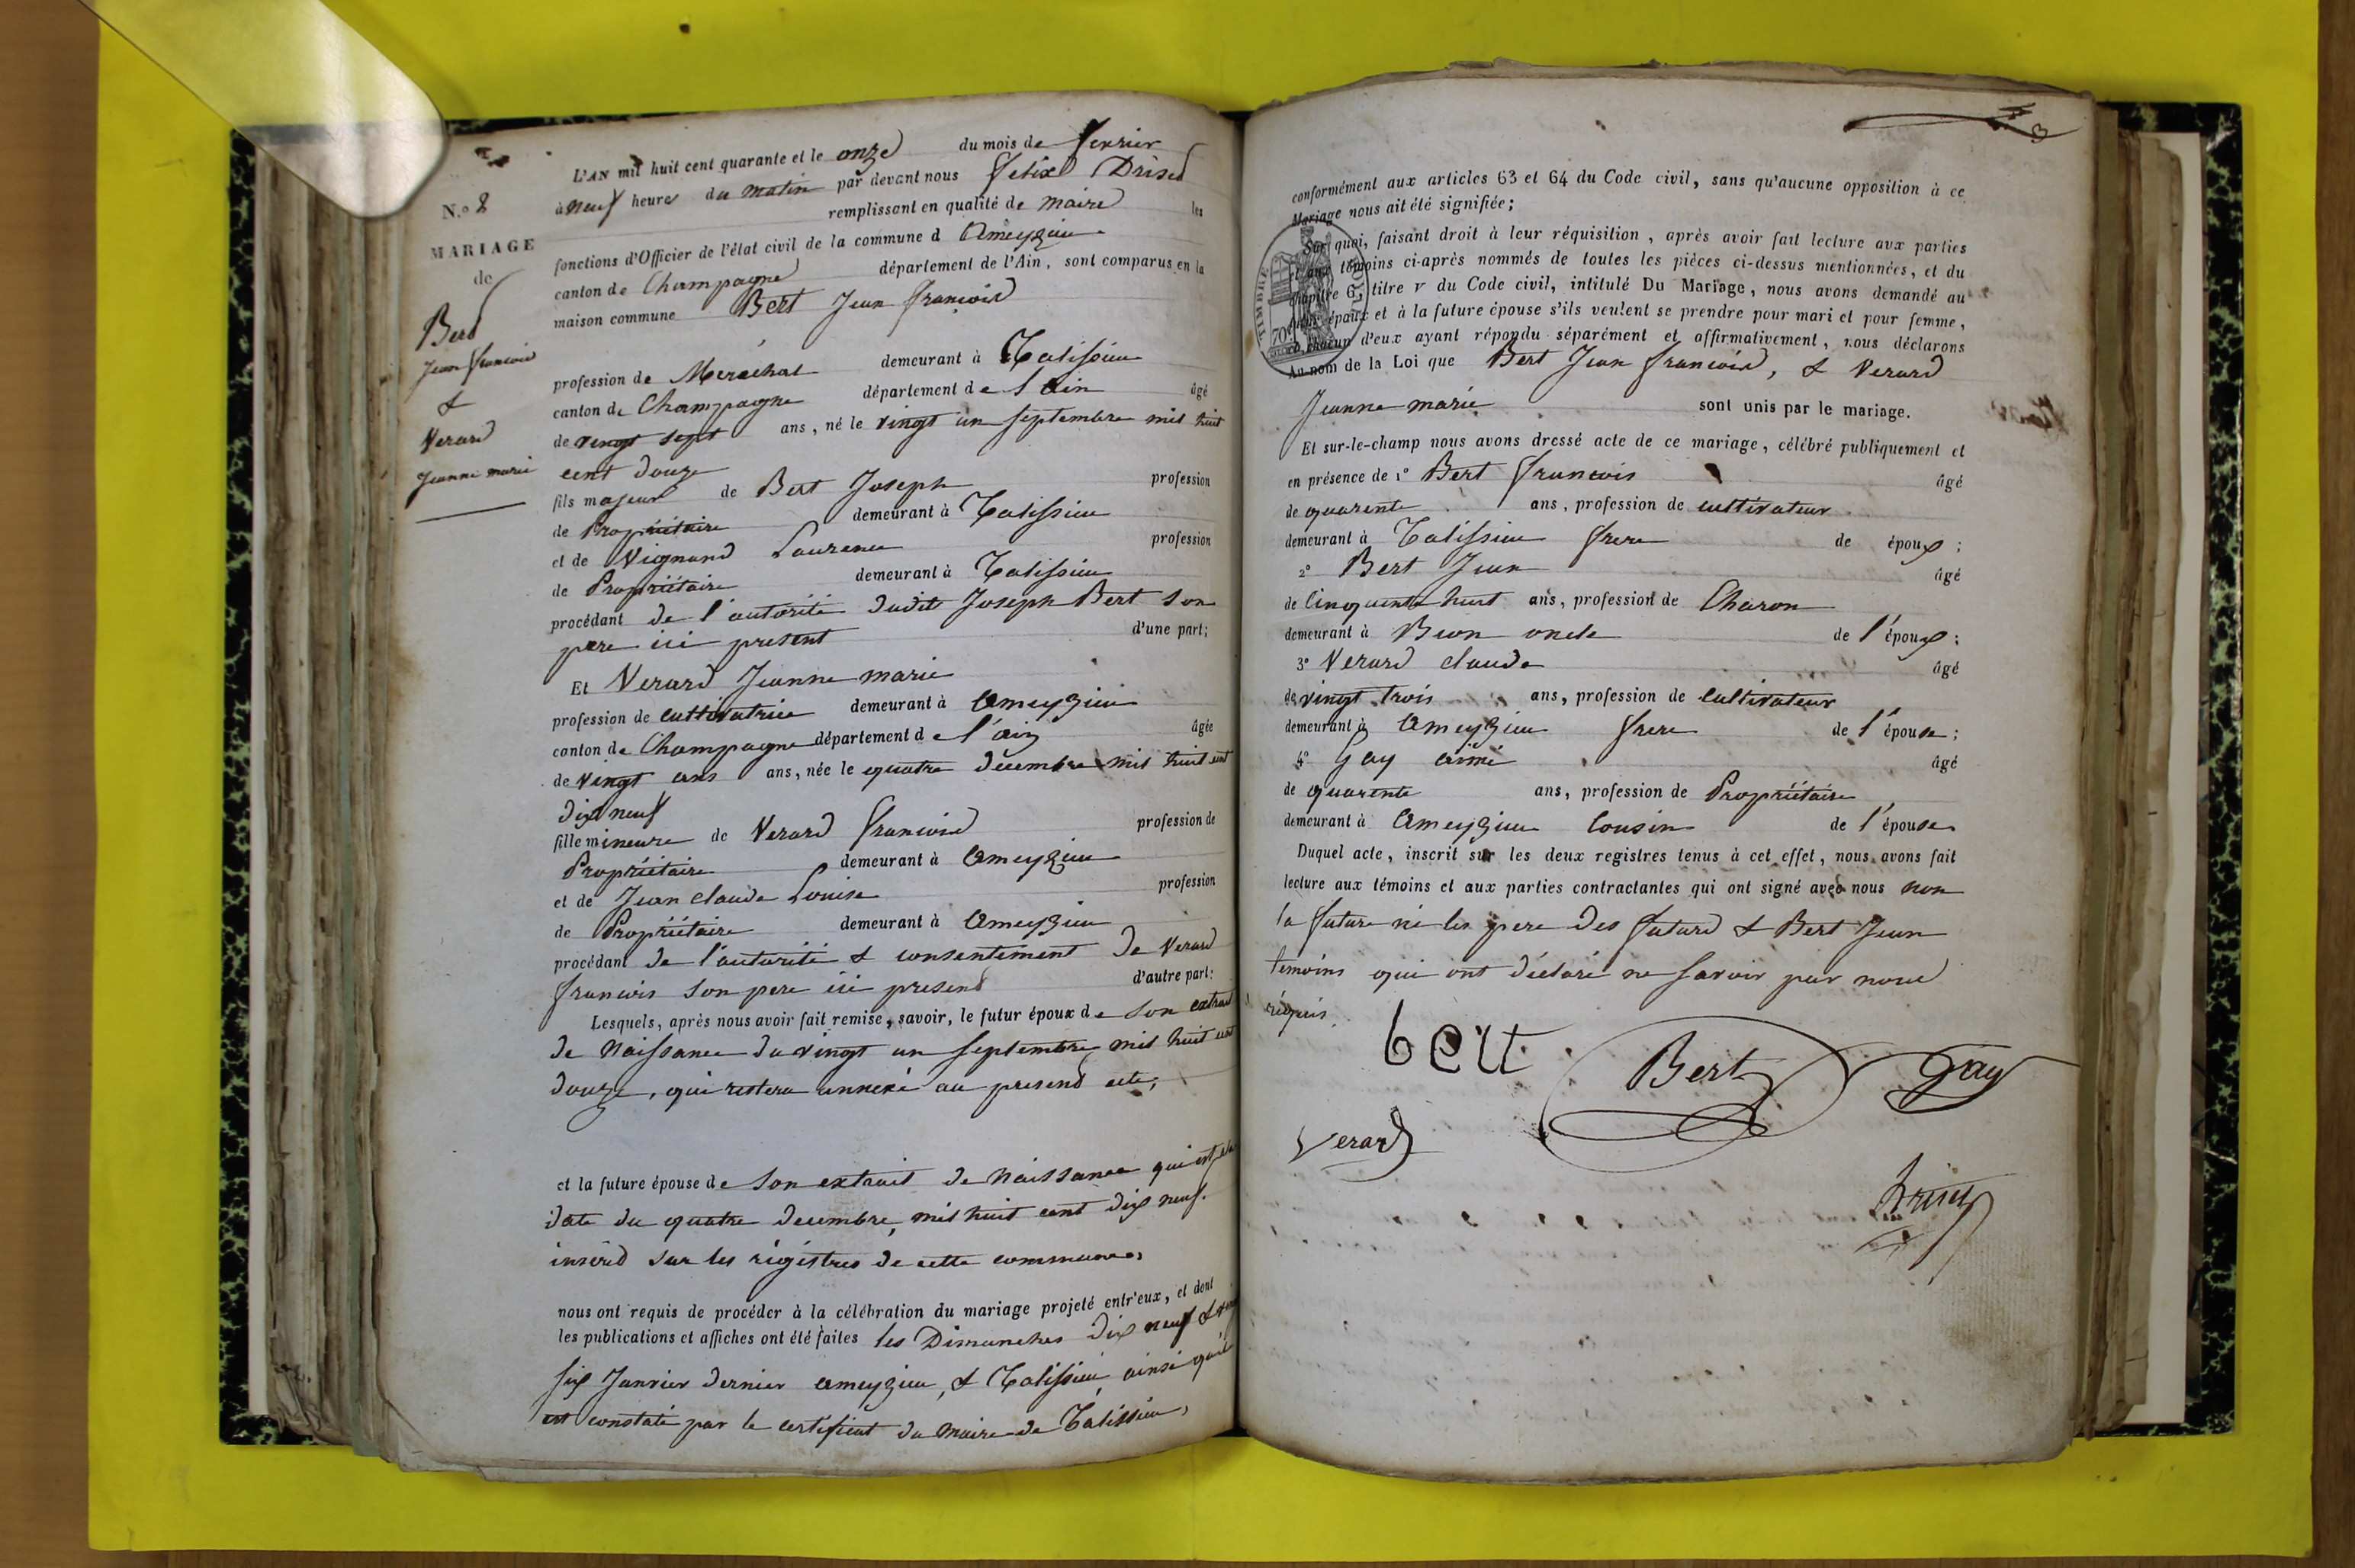 L'AN mil huit cent quarante et le onze du mois de fevrier
à neuf heures du matin par devant nous felix Drised
remplissant en qualité de maire les
fonctions d'Officier de l'état civil de la commune d Ameyzieu
canton de Champagne département de l'Ain, sont comparus en la
maison commune Bert Jean francois
N.º 2
MARIAGE
de
Bert
Jean francois
&
Verard
Jeanne marie
profession de Maréchal demeurant à Talissieu
canton de Champagne département de l'ain âgé
de vingt sept ans, né le vingt un septembre mil huit
cent douze
fils majeur de Bert Joseph profession
de Propriétaire demeurant à Talissieu
et de Vignand Laurence profession
de Propriétaire demeurant à Talissieu
procédant de l'autorité dudit Joseph Bert son
pere ici present d'une part;
Et Verard Jeanne marie
profession de cultivatrice demeurant à Ameyzieu
canton de Champagne département de l'ain âgée
de vingt ans ans, née le quatre décembre mil huit cent
dix neuf
fille mineure de Verard francois profession de
Propriétaire demeurant à Ameyzieu
et de Jean claude Louise profession
de Propriétaire demeurant à Ameyzieu
procédant de l'autorité & consentement de Verard
francois son pere ici present d'autre part:
Lesquels, après nous avoir fait remise, savoir, le futur époux de son extrait
de Naissance du vingt un septembre mil huit cent
douze, qui restera annexé au present acte;
et la future épouse de son extrait de Naissance qui est
date du quatre decembre, mil huit cent dix neuf.
inséré sur les régistres de cette commune,
nous ont requis de procéder à la célébration du mariage projeté entr'eux, et dont
les publications et affiches ont été faites les Dimanches dix neuf & vingt
six Janvier dernier ameyzieu, & Talissieu, ainsi qu'il
est constaté par le certificat du maire de Talissieu,
3
conformément aux articles 63 et 64 du Code civil, sans qu'aucune opposition à ce
Mariage nous ait été signifiée;
Sur quoi, faisant droit à leur réquisition, après avoir fait lecture aux parties
et aux témoins ci-après nommés de toutes les pièces ci-dessus mentionnées, et du
chapitre 6, titre v du Code civil, intitulé Du Mariage, nous avons demandé au
futur époux et à la future épouse s'ils veulent se prendre pour mari et pour femme,
et chacun d'eux ayant répondu séparément et affirmativement, nous déclarons
Au nom de la Loi que Bert Jean francois, & Verard
Jeanne marie sont unis par le mariage.
TIMBRE ROYAL
70
Et sur-le-champ nous avons dressé acte de ce mariage, célébré publiquement et
en présence de 1º Bert francois âgé
de quarente ans, profession de cultivateur
demeurant à Talissieu frere de époux;
2º Bert Jean âgé
de Cinquente huit ans, profession de Charon
demeurant à Béon oncle de l'époux;
3º Verard claude âgé
de vingt trois ans, profession de cultivateur
demeurant à Ameyzieu frere de l'épouse;
4º Gay aimé âgé
de quarente ans, profession de Propriétaire
demeurant à Ameyzieu Cousin de l'épouse
Duquel acte, inscrit sur les deux registres tenus à cet effet, nous avons fait
lecture aux témoins et aux parties contractantes qui ont signé avec nous non
la future ni les pere des futurs & Bert Jean
temoins qui ont déclaré ne savoir par nous
réquis.
bert Bert Gay
Verard